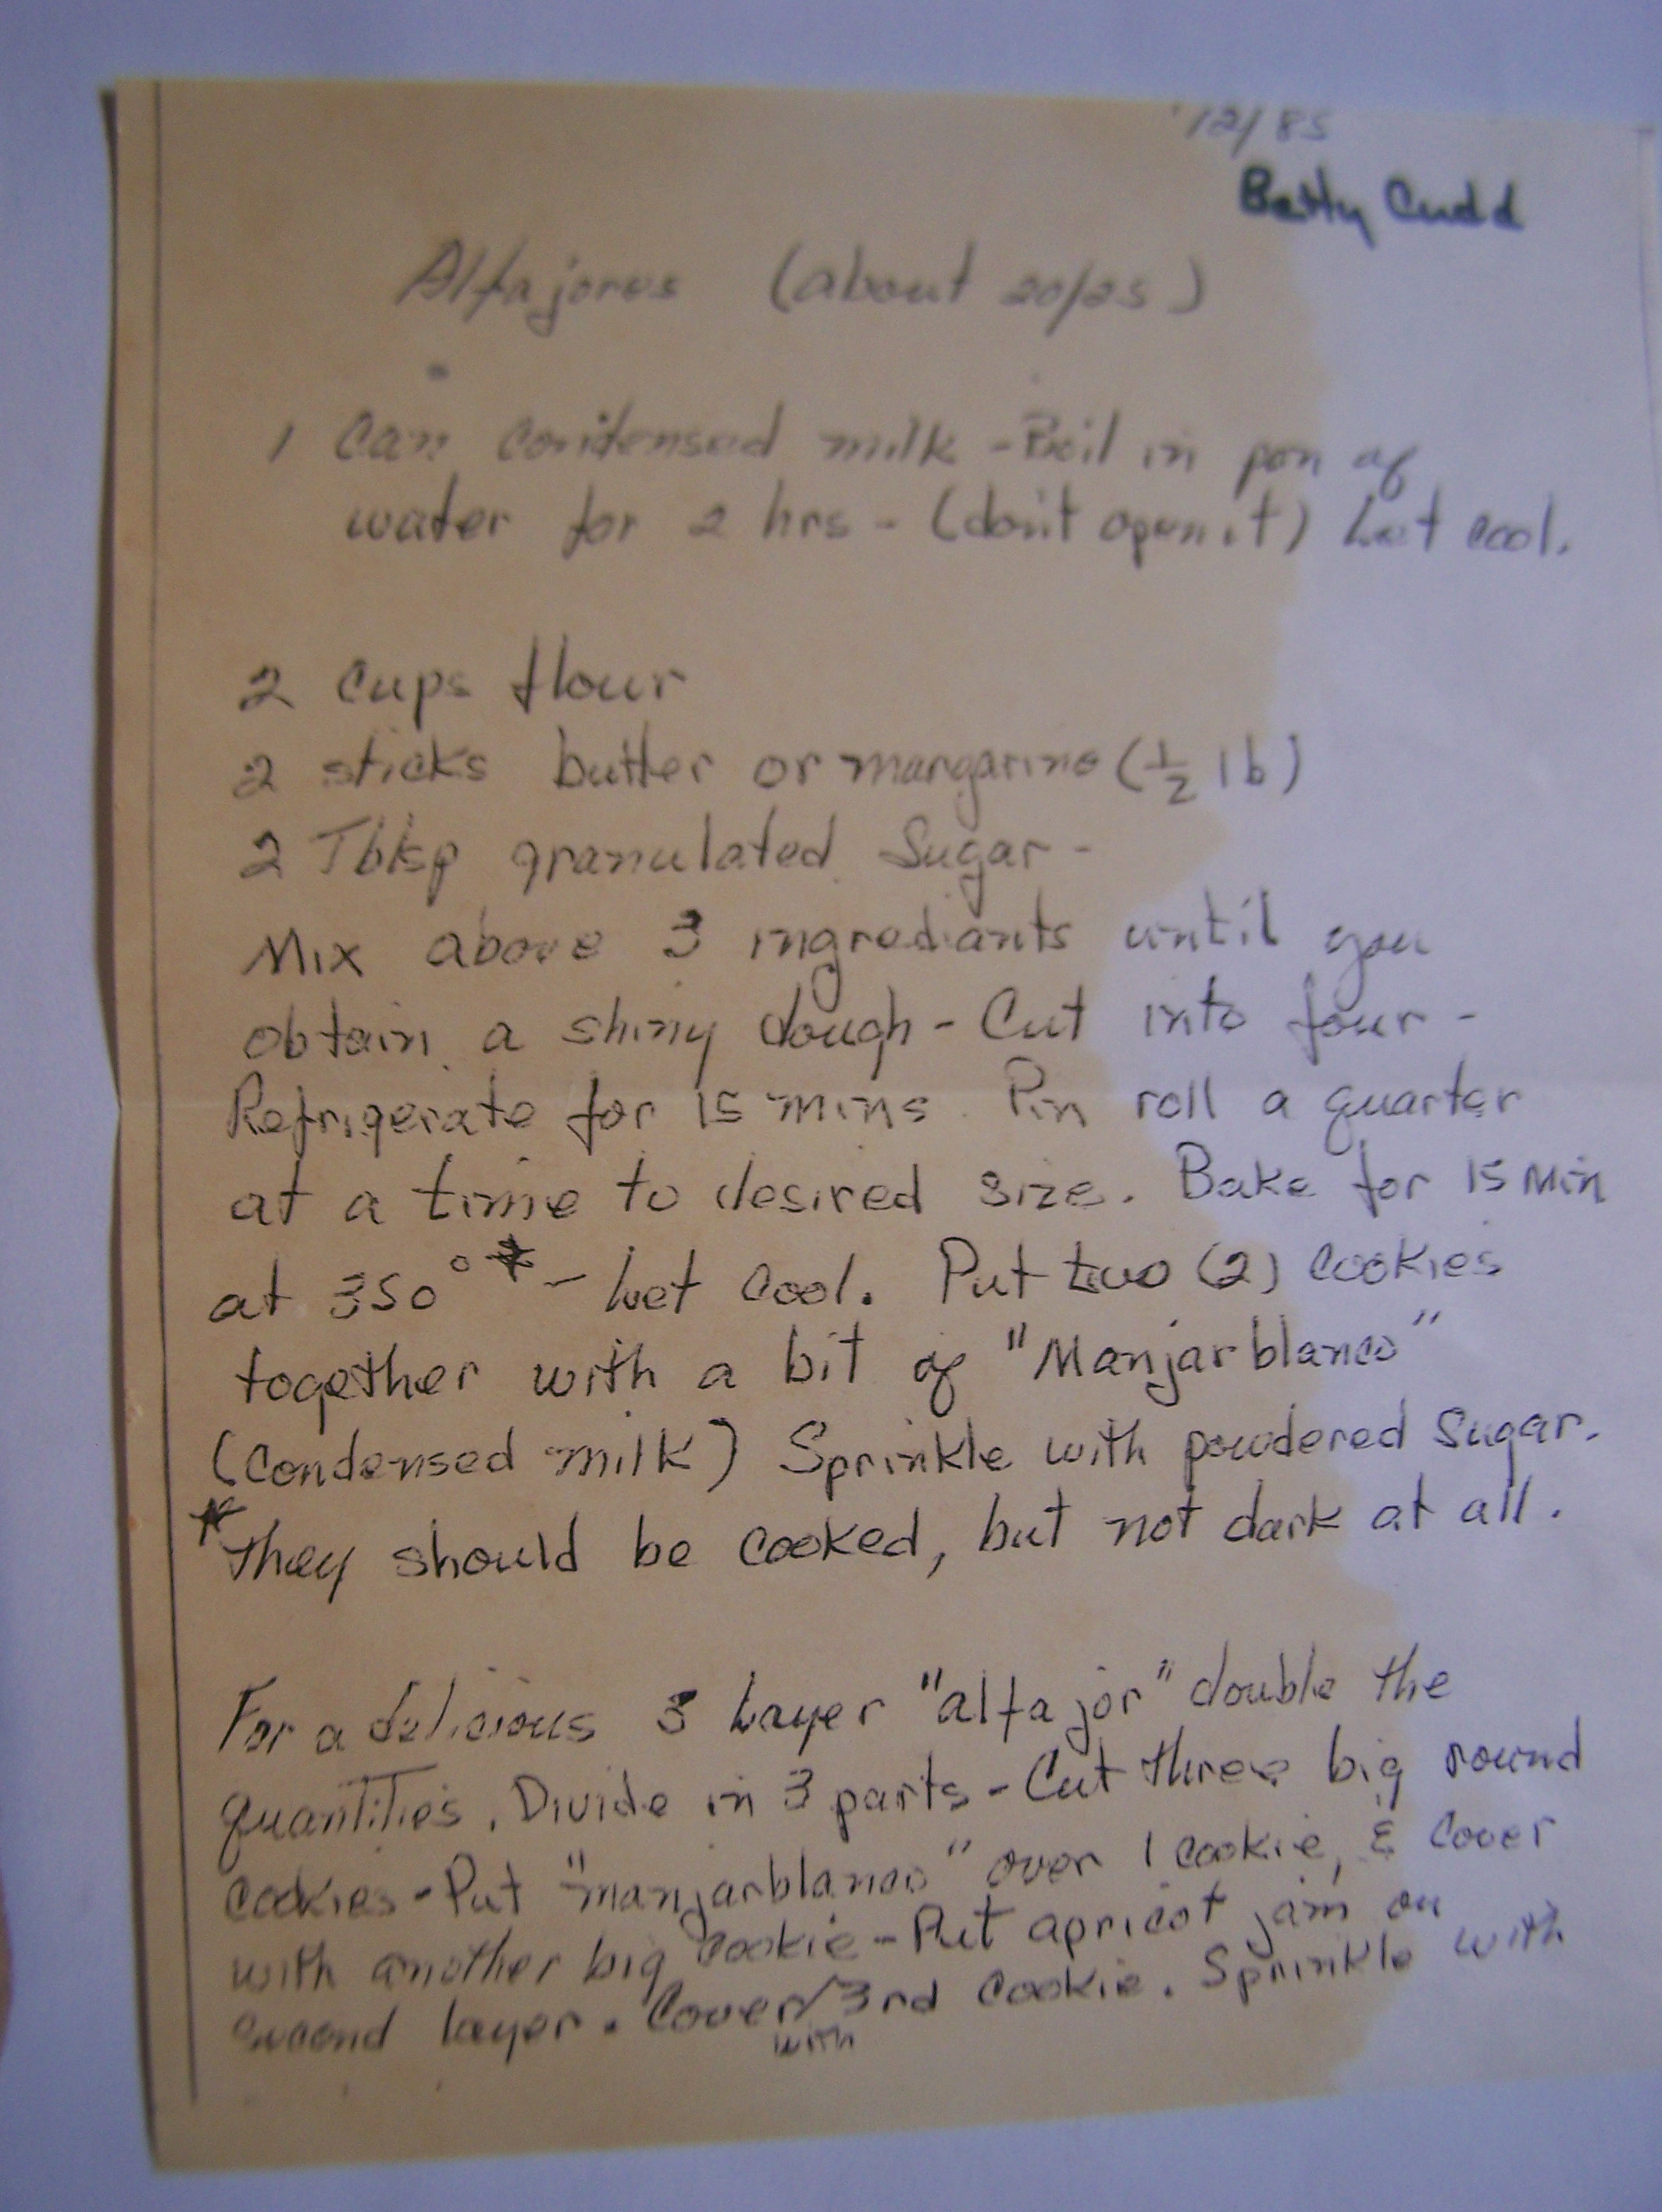 12/85
Betty Cudd
Alfajores (about 20/25)
1 Can Condensed milk - Boil in pan of
water for 2 hrs - (don't open it) Let cool.
2 Cups flour
2 sticks butter or margarine (1/2 lb)
2 Tblsp granulated Sugar -
Mix above 3 ingrediants until you
obtain a shiny dough - Cut into four -
Refrigerate for 15 mins. Pin roll a quarter
at a time to desired size. Bake for 15 Min
at 350° * - Let Cool. Put two (2) Cookies
together with a bit of "Manjarblanco"
(Condensed milk) Sprinkle with powdered Sugar.
* They should be cooked, but not dark at all.
For a delicious 3 Layer "alfajor" double the
quantities. Divide in 3 parts - Cut three big round
cookies - Put "manjarblanco" over 1 cookie, & Cover
with another big cookie - Put apricot jam on
second layer. Cover with 3rd Cookie. Sprinkle with